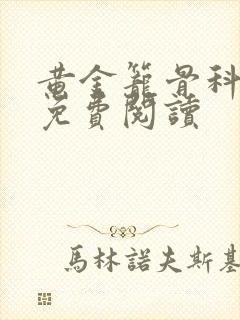 黄金籠骨科
免費閱讀
馬林諾夫斯基